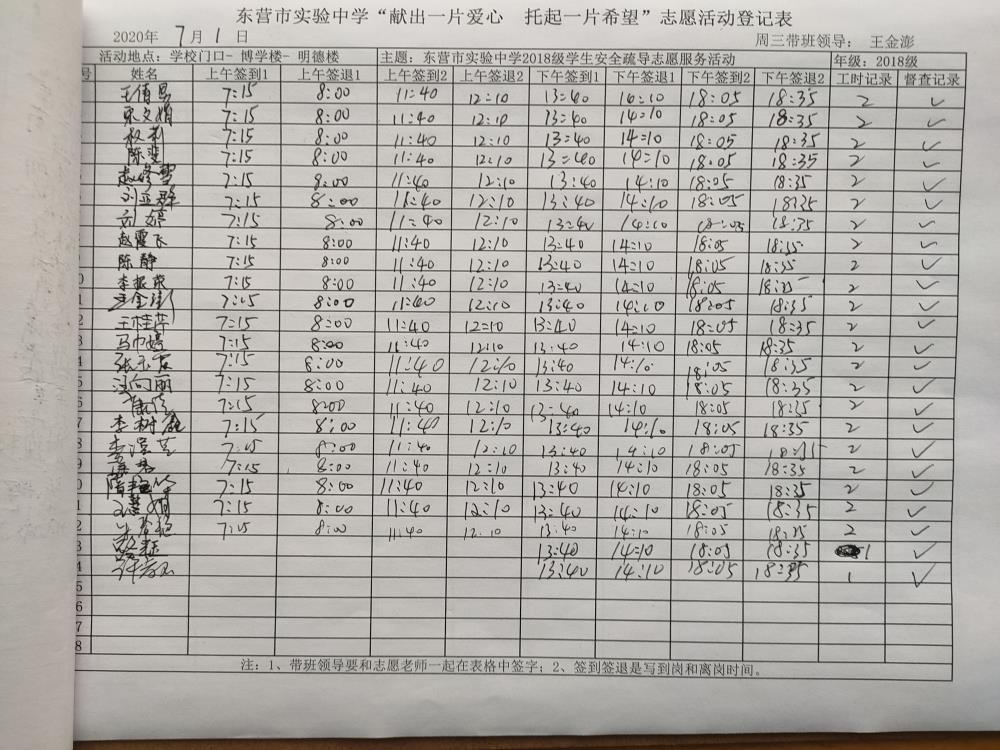 东营市实验中学“献出一片爱心 托起一片希望”志愿活动登记表
2020年 7月 1日 周三带班领导： 王金澎
活动地点：学校门口- 博学楼- 明德楼 主题：东营市实验中学2018级学生安全疏导志愿服务活动 年级：2018级
号 姓名 上午签到1 上午签退1 上午签到2 上午签退2 下午签到1 下午签退1 下午签到2 下午签退2 工时记录 督查记录
7:15 8:00 11:40 12:10 13:40 14:10 18:05 18:35 2 ✓
宋文娟 7:15 8:00 11:40 12:10 13:40 14:10 18:05 18:35 2 ✓
7:15 8:00 11:40 12:10 13:40 14:10 18:05 18:35 2 ✓
陈斐 7:15 8:00 11:40 12:10 13:40 14:10 18:05 18:35 2 ✓
7:15 8:00 11:40 12:10 13:40 14:10 18:05 18:35 2 ✓
刘亚群 7:15 8:00 11:40 12:10 13:40 14:10 18:05 18:35 2 ✓
刘婷 7:15 8:00 11:40 12:10 13:40 14:10 18:05 18:35 2 ✓
赵霞飞 7:15 8:00 11:40 12:10 13:40 14:10 18:05 18:35 2 ✓
陈静 7:15 8:00 11:40 12:10 13:40 14:10 18:05 18:35 2 ✓
0 李振荣 7:15 8:00 11:40 12:10 13:40 14:10 18:05 18:35 2 ✓
1 王金澎 7:15 8:00 11:40 12:10 13:40 14:10 18:05 18:35 2 ✓
2 王桂芹 7:15 8:00 11:40 12:10 13:40 14:10 18:05 18:35 2 ✓
3 马巾婷 7:15 8:00 11:40 12:10 13:40 14:10 18:05 18:35 2 ✓
4 7:15 8:00 11:40 12:10 13:40 14:10 18:05 18:35 2 ✓
5 汪向丽 7:15 8:00 11:40 12:10 13:40 14:10 18:05 18:35 2 ✓
6 7:15 8:00 11:40 12:10 13:40 14:10 18:05 18:35 2 ✓
7 李树 7:15 8:00 11:40 12:10 13:40 14:10 18:05 18:35 2 ✓
8 7:15 8:00 11:40 12:10 13:40 14:10 18:05 18:35 2 ✓
9 7:15 8:00 11:40 12:10 13:40 14:10 18:05 18:35 2 ✓
0 7:15 8:00 11:40 12:10 13:40 14:10 18:05 18:35 2 ✓
1 7:15 8:00 11:40 12:10 13:40 14:10 18:05 18:35 2 ✓
2 7:15 8:00 11:40 12:10 13:40 14:10 18:05 18:35 2 ✓
3 13:40 14:10 18:05 18:35 1 ✓
4 13:40 14:10 18:05 18:35 1 ✓
5
6
7
8
注：1、带班领导要和志愿老师一起在表格中签字；2、签到签退是写到岗和离岗时间。